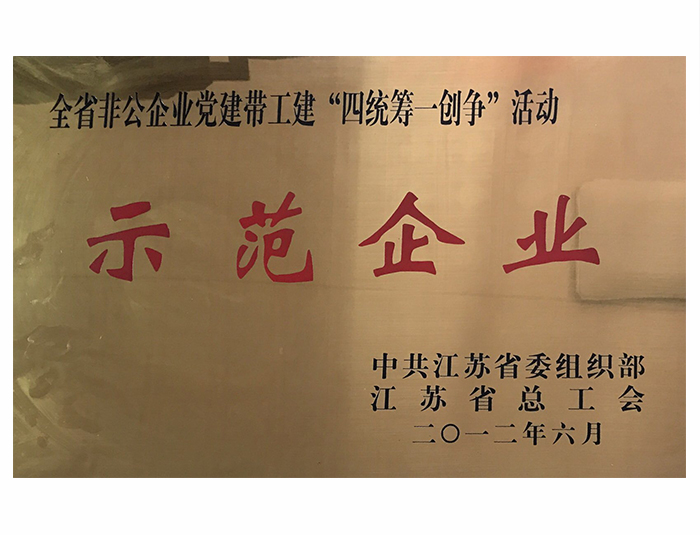 全省非公企业党建带工建“四统筹一创争”活动
示范企业
中共江苏省委组织部
江苏省总工会
二〇一二年六月